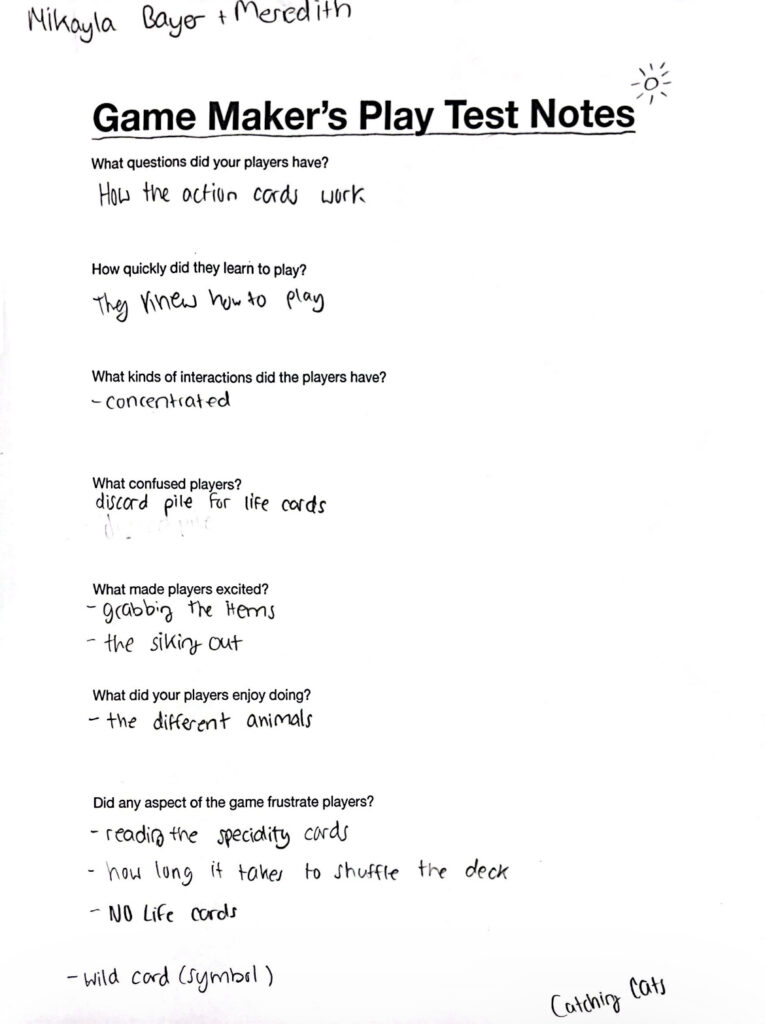 Mikayla Bayer + Meredith
Game Maker's Play Test Notes
What questions did your players have?
How the action cards work
How quickly did they learn to play?
They knew how to play
What kinds of interactions did the players have?
- concentrated
What confused players?
discard pile for life cards
What made players excited?
- grabbing the items
- the siking out
What did your players enjoy doing?
- the different animals
Did any aspect of the game frustrate players?
- reading the speciality cards
- how long it takes to shuffle the deck
- NO Life cards
- wild card (symbol)
Catching Cats